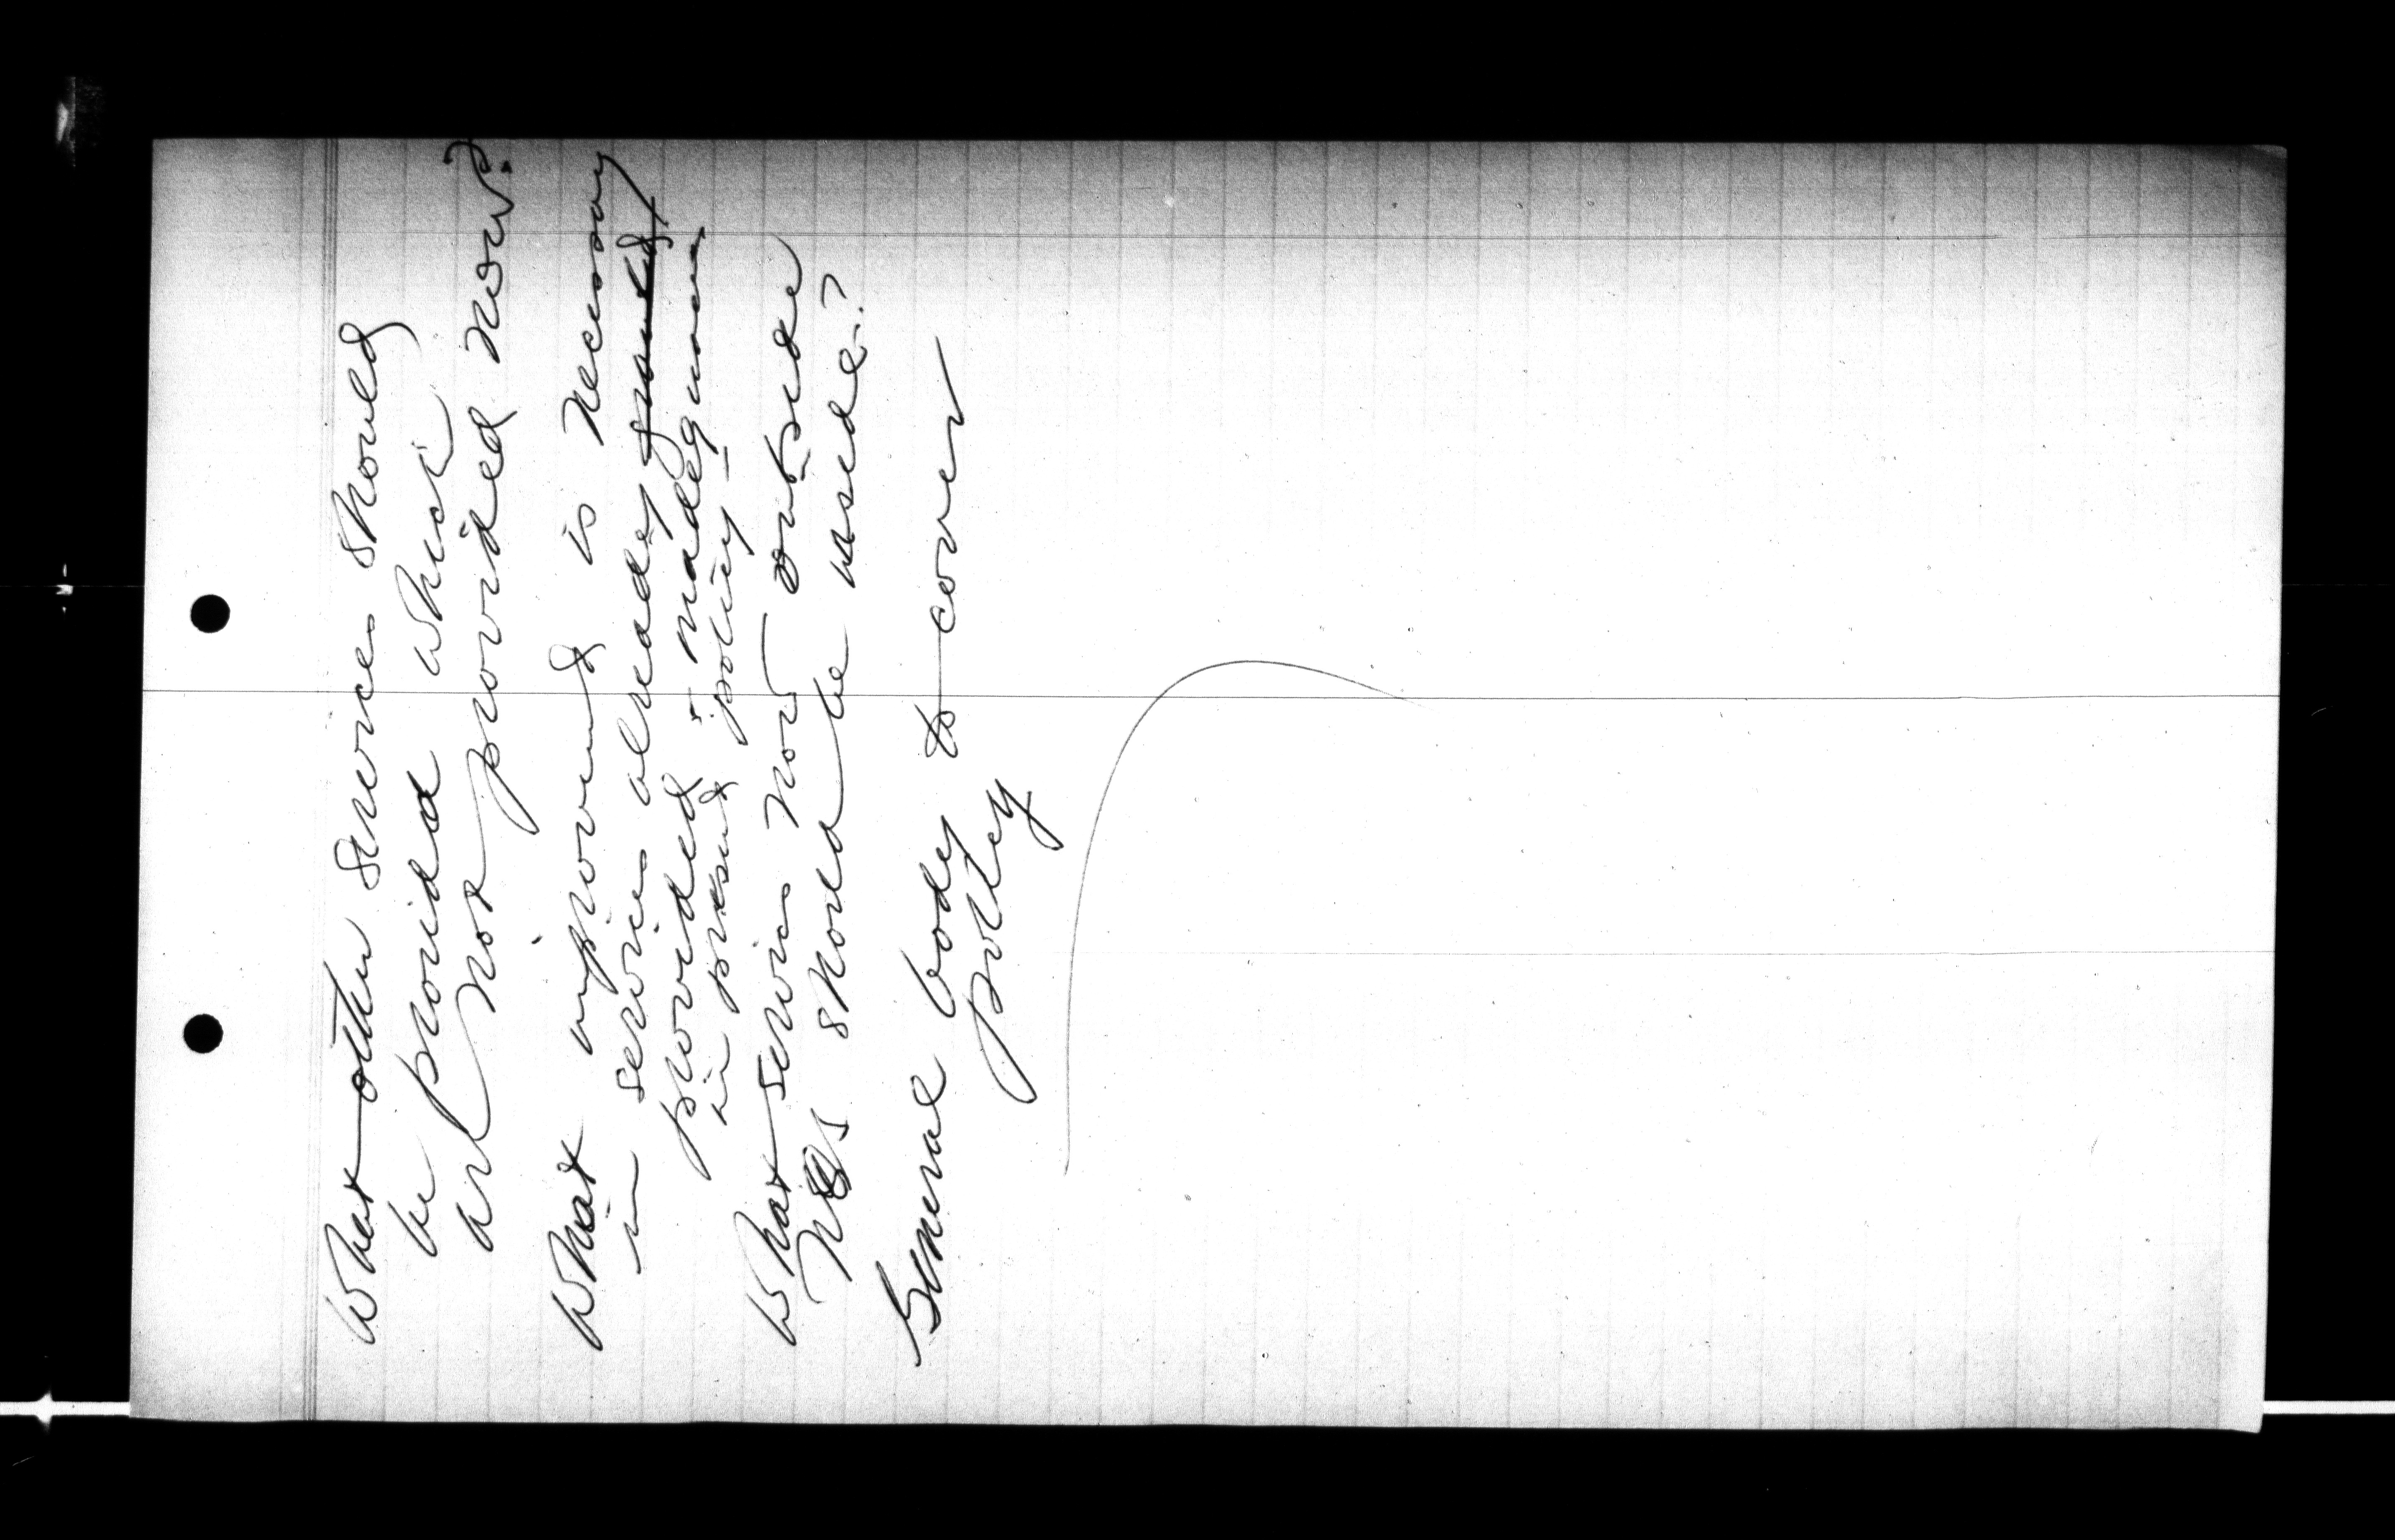 What other services should
be provided which
are not provided now?
What improvement is necessary
in services already
provided - inadequacies
in present policy -
What services now outside
NCS should be inside?
General body to cover
policy